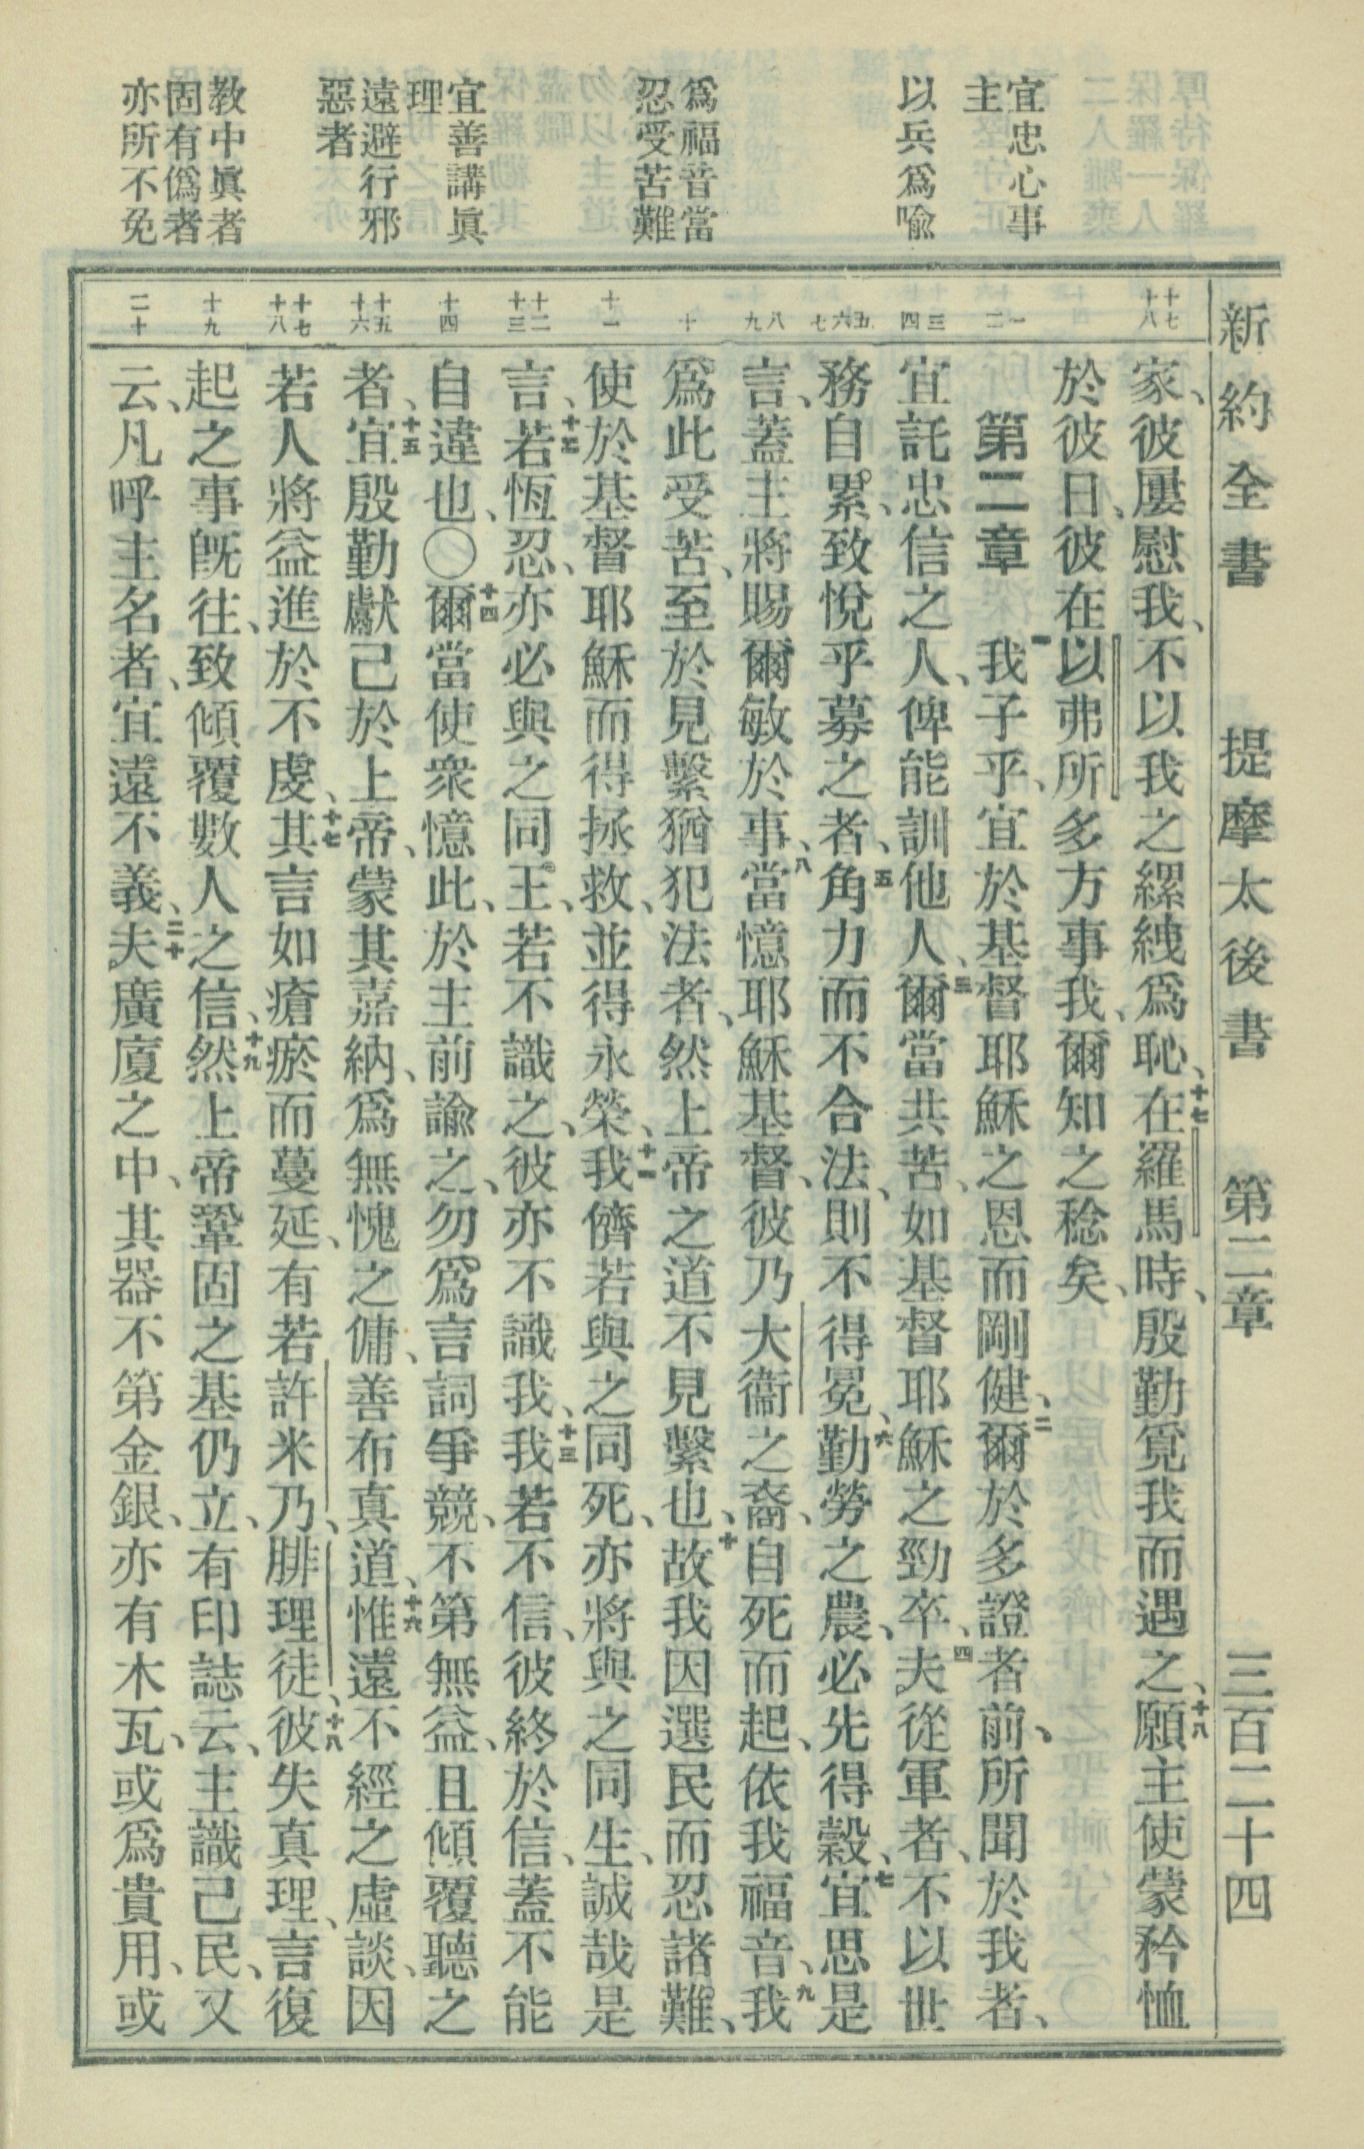 新約全書　提摩太後書　第二章　三百二十四
宜忠心事
主
以兵爲喻
爲福音當
忍受苦難
宜善講眞
理
遠避行邪
惡者
教中眞者
固有僞者
亦所不免
十七 十八
一 二
三 四
五 六 七
八 九
十
十一
十二 十三
十四
十五 十六
十七 十八
十九
二十
家、彼屢慰我、不以我之縲絏爲恥、十七在羅馬時、殷勤覓我而遇之、十八願主使蒙矜恤
於彼日、彼在以弗所多方事我、爾知之稔矣、
第二章　一我子乎、宜於基督耶穌之恩而剛健、二爾於多證者前、所聞於我者、
宜託忠信之人、俾能訓他人、三爾當共苦、如基督耶穌之勁卒、四夫從軍者、不以世
務自累、致悅乎募之者、五角力而不合法、則不得冕、六勤勞之農、必先得穀、七宜思是
言、蓋主將賜爾敏於事、八當憶耶穌基督、彼乃大衞之裔、自死而起、依我福音、九我
爲此受苦、至於見繫猶犯法者、然上帝之道不見繫也、十故我因選民而忍諸難、
使於基督耶穌而得拯救、並得永榮、十一我儕若與之同死、亦將與之同生、誠哉是
言、十二若恆忍、亦必與之同王、若不識之、彼亦不識我、十三我若不信、彼終於信、蓋不能
自違也、〇十四爾當使衆憶此、於主前諭之、勿爲言詞爭競、不第無益、且傾覆聽之
者、十五宜殷勤獻己於上帝、蒙其嘉納、爲無愧之傭、善布真道、十六惟遠不經之虛談、因
若人將益進於不虔、十七其言如瘡瘀而蔓延、有若許米乃、腓理徒、十八彼失真理、言復
起之事旣往、致傾覆數人之信、十九然上帝鞏固之基仍立、有印誌云、主識己民、又
云、凡呼主名者、宜遠不義、二十夫廣廈之中、其器不第金銀、亦有木瓦、或爲貴用、或